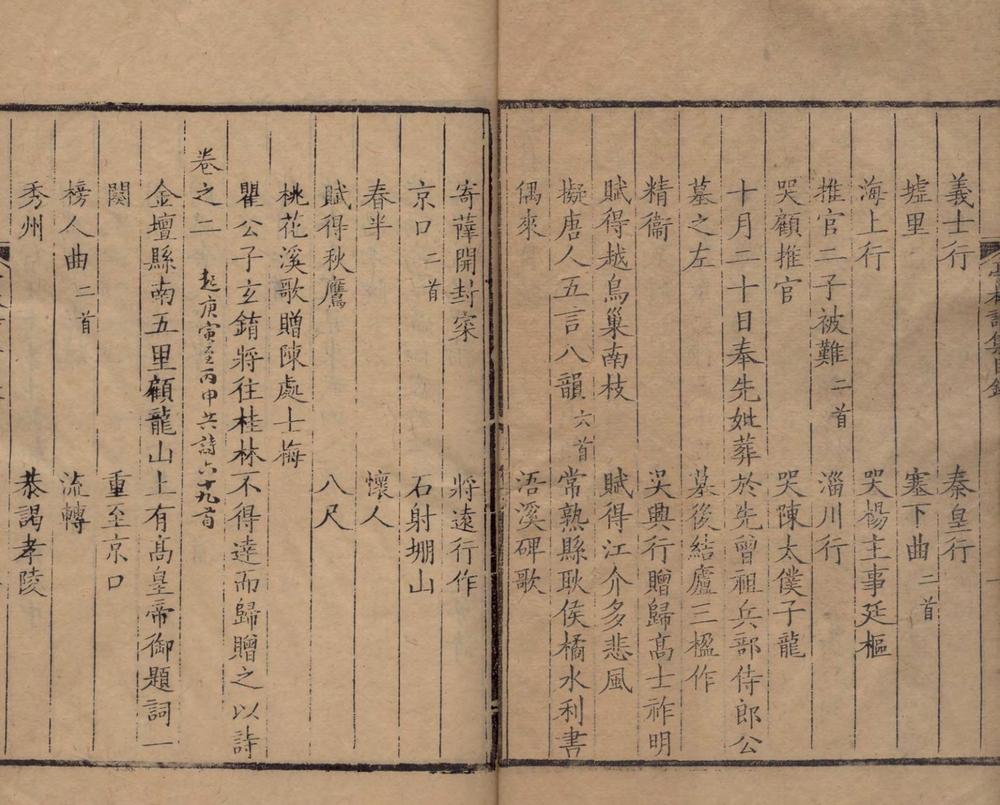 義士行 秦皇行
墟里 塞下曲二首
海上行 哭楊主事廷樞
推官二子被難二首 淄川行
哭顧推官 哭陳太僕子龍
十月二十日奉先妣葬於先曾祖兵部侍郎公
墓之左 墓後結廬三楹作
精衞 吳興行贈歸高士祚明
賦得越鳥巢南枝 賦得江介多悲風
擬唐人五言八韻六首 常熟縣耿侯橘水利書
偶來 浯溪碑歌
寄薛開封寀 將遠行作
京口二首 石射堋山
春半 懷人
賦得秋鷹 八尺
桃花溪歌贈陳處士梅
瞿公子玄錥將往桂林不得達而歸贈之以詩
卷之二 起庚寅至丙申共詩六十九首
金壇縣南五里顧龍山上有高皇帝御題詞一
闋 重至京口
榜人曲二首 流轉
秀州 恭謁孝陵